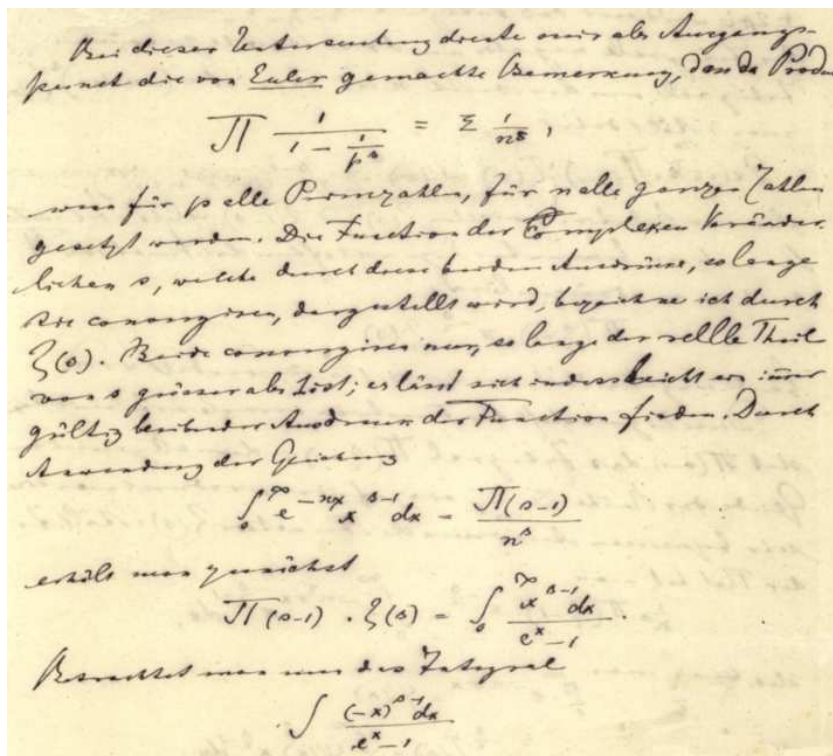 Bei dieser Untersuchung diente mir als Ausgangs-
punct die von Euler gemachte Bemerkung, dass das Produ
∏ 1/(1 − 1/p^s) = Σ 1/n^s,
wenn für p alle Primzahlen, für n alle ganzen Zahlen
gesetzt werden. Die Function der complexen Veränder-
lichen s, welche durch diese beiden Ausdrücke, so lange
sie convergiren, dargestellt wird, bezeichne ich durch
ζ(s). Beide convergiren nur, so lange der reelle Theil
von s grösser als 1 ist; es lässt sich indess leicht ein immer
gültig bleibender Ausdruck der Function finden. Durch
Anwendung der Gleichung
∫₀^∞ e^{−nx} x^{s−1} dx = ∏(s−1)/n^s
erhält man zunächst
∏(s−1) . ζ(s) = ∫₀^∞ x^{s−1} dx/(e^x − 1).
Betrachtet man nun das Integral
∫ (−x)^{s−1} dx/(e^x − 1)